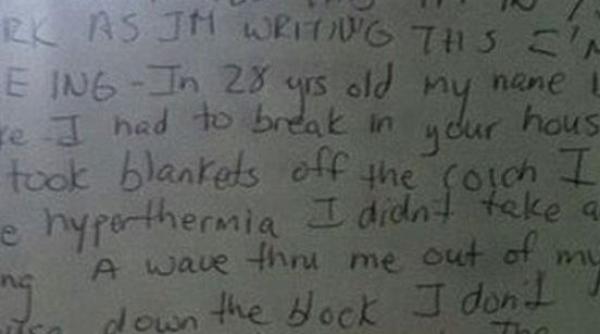 RK AS IM WRITING THIS I'M
E ING - In 28 yrs old my name
re I had to break in your hous
took blankets off the coich I
e hyperthermia I didnt take a
ng A wave thru me out of my
down the block I don't